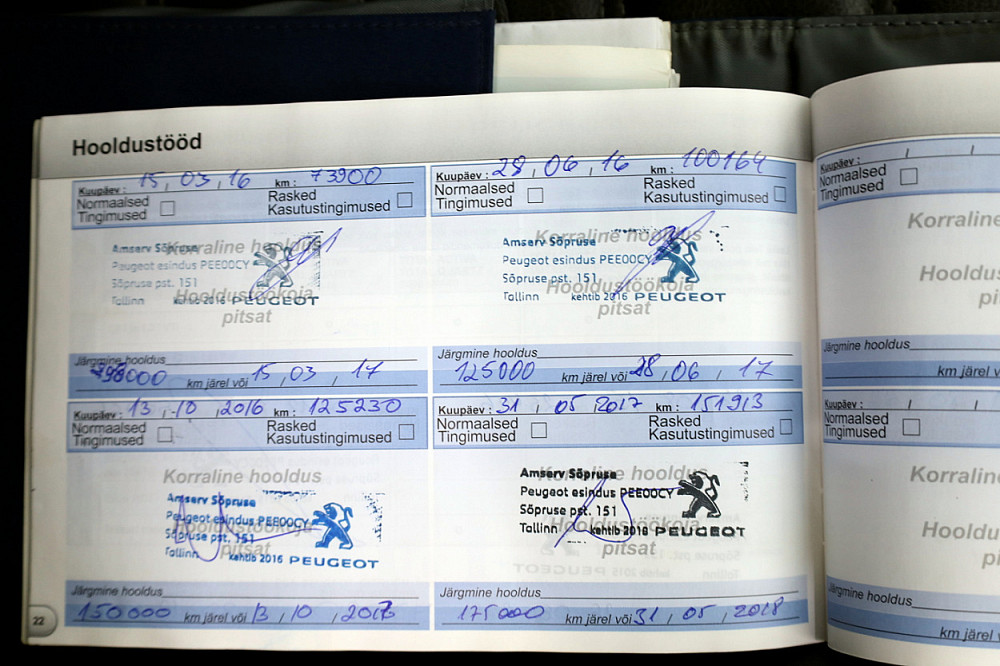 Hooldustööd
Kuupäev : 15 , 03 , 16 km : 73900
Normaalsed Tingimused Rasked Kasutustingimused
Amserv Sõpruse
Korraline hooldus
Peugeot esindus PEE00CY
Sõpruse pst. 151
Hooldustöökoja
Tallinn kehtib 2016 PEUGEOT
pitsat
Järgmine hooldus
98000 km järel või 15 , 03 , 17
Kuupäev : 28 , 06 , 16 km : 100164
Normaalsed Tingimused Rasked Kasutustingimused
Korraline hooldus
Amserv Sõpruse
Peugeot esindus PEE00CY
Sõpruse pst. 151
Hooldustöökoja
Tallinn kehtib 2016 PEUGEOT
pitsat
Järgmine hooldus
125000 km järel või 28 , 06 , 17
Kuupäev : 13 , 10 , 2016 km : 125230
Normaalsed Tingimused Rasked Kasutustingimused
Korraline hooldus
Amserv Sõpruse
Peugeot esindus PEE00CY
Hooldustöökoja
Sõpruse pst. 151
pitsat
Tallinn kehtib 2016 PEUGEOT
Järgmine hooldus
150000 km järel või 13 , 10 , 2017
Kuupäev : 31 , 05 , 2017 km : 151913
Normaalsed Tingimused Rasked Kasutustingimused
Korraline hooldus
Amserv Sõpruse
Peugeot esindus PEE00CY
Sõpruse pst. 151
Hooldustöökoja
Tallinn kehtib 2016 PEUGEOT
pitsat
Järgmine hooldus
175000 km järel või 31 , 05 , 2018
22
Kuupäev : / /
Normaalsed
Tingimused
Korraline
Hooldust
pi
Järgmine hooldus
km järel v
Kuupäev : / /
Normaalsed
Tingimused
Korraline
Hooldust
pi
Järgmine hooldus
km järel